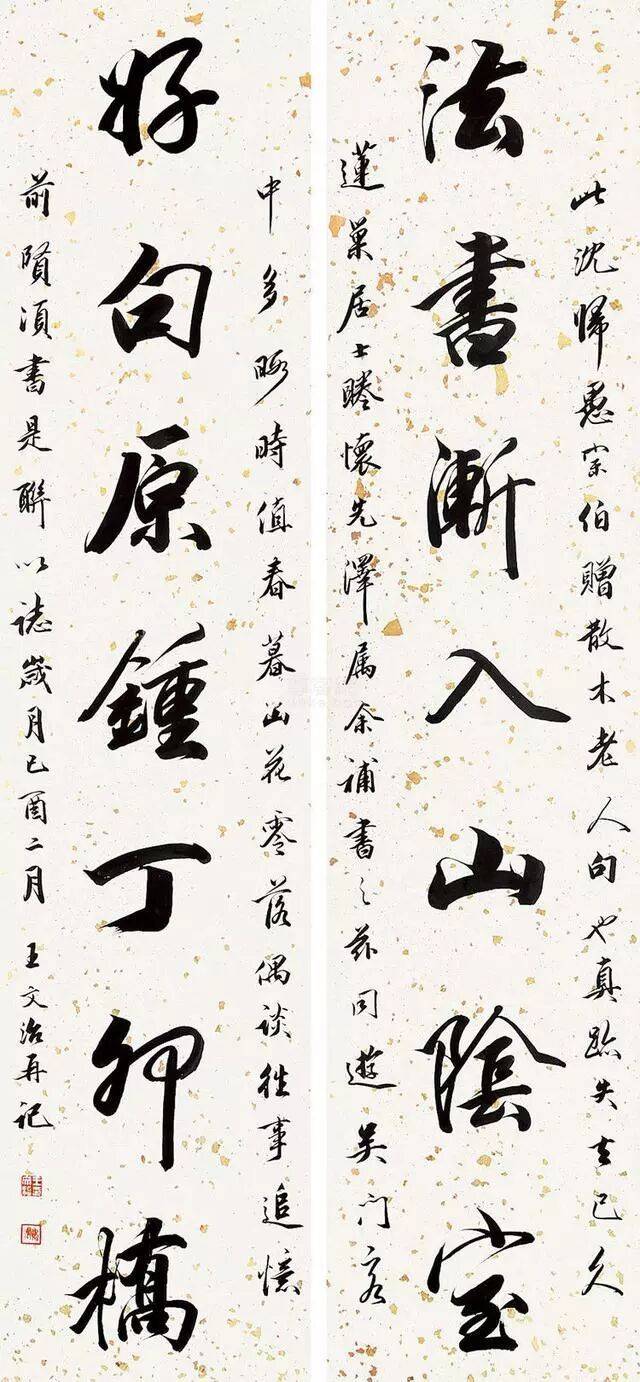 法書漸入山陰室
好句原鍾丁卯橋
此沈歸愚宗伯贈散木老人句也真跡失去已久
蓮巢居士睠懷先澤属余補書之茲同遊吳門客
中多暇時值春暮山花零落偶談往事追憶
前賢須書是聯以誌歲月己酉二月 王文治再記